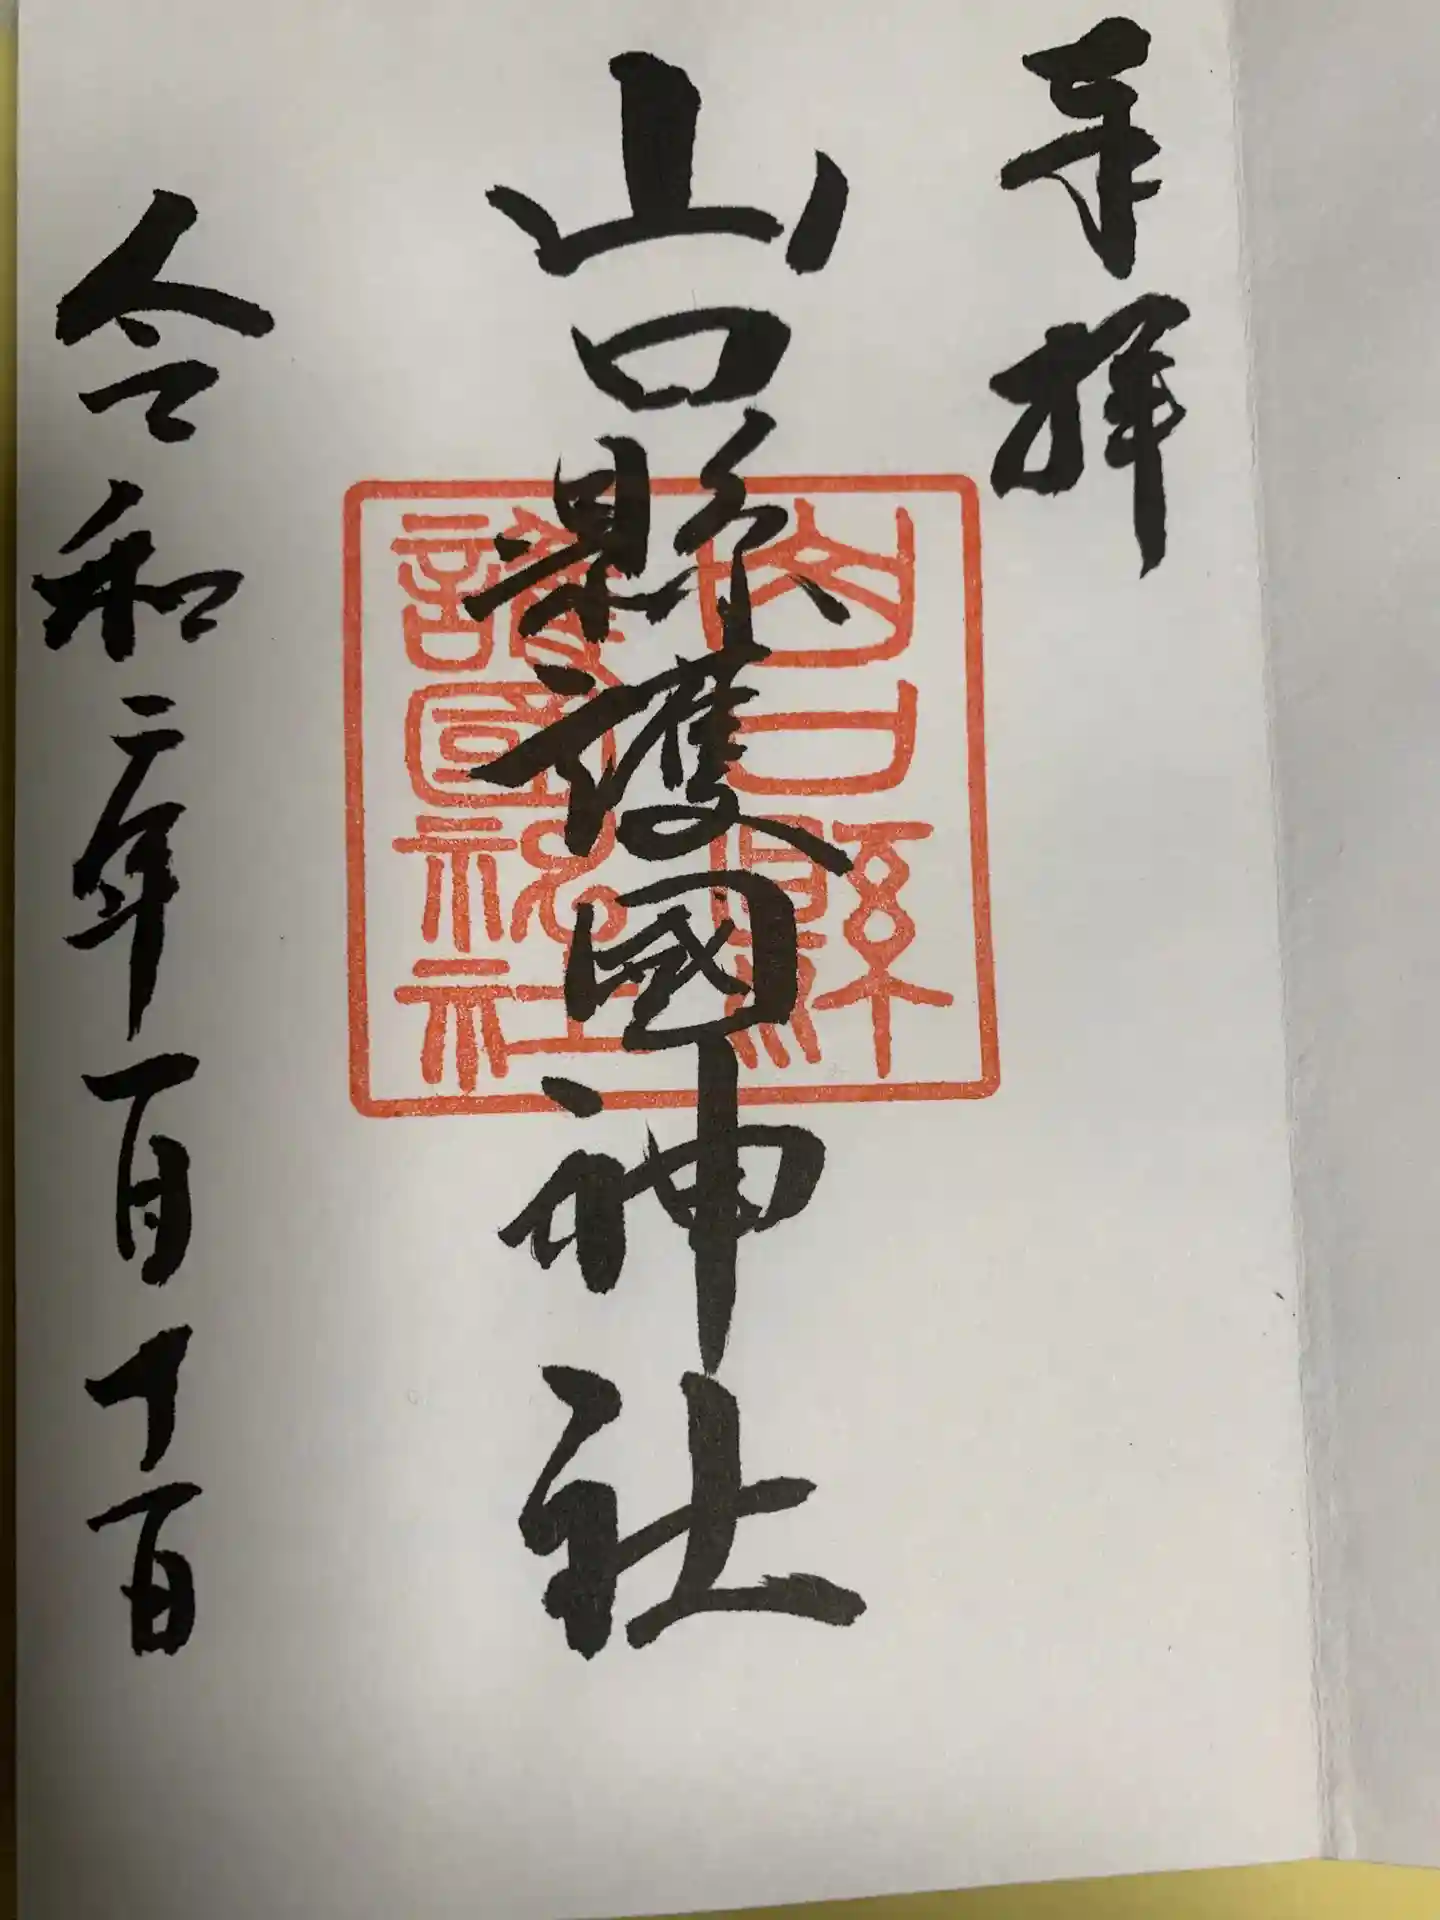 奉拝
山口縣護國神社
令和二年一月十一日
山口縣
護國神社